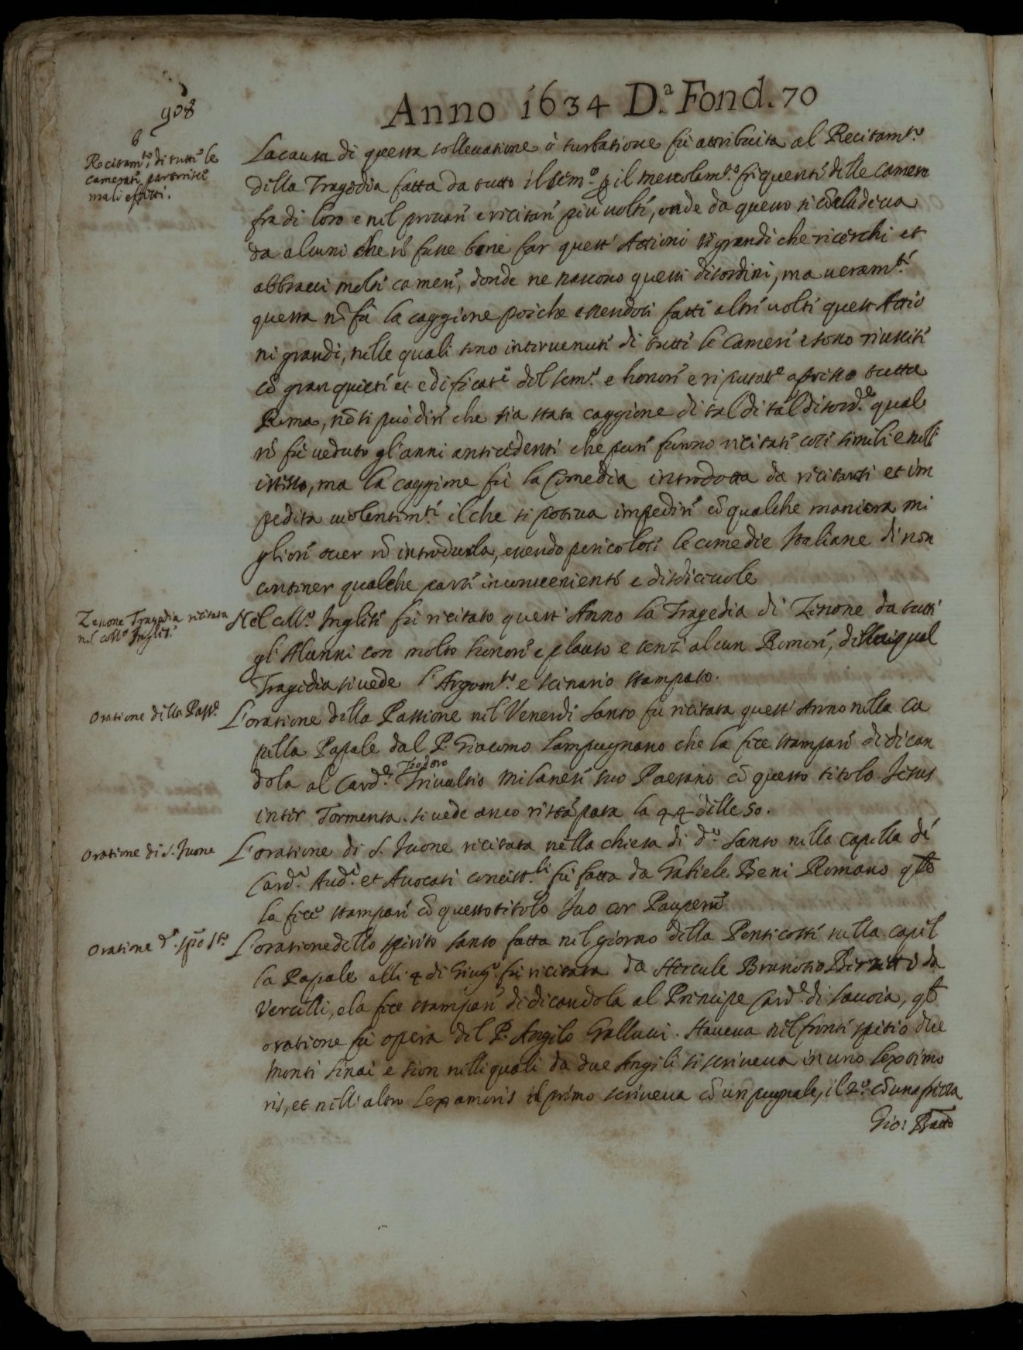 908
Anno 1634 D.ª Fond. 70
6
Recitam.to di tutte le
camerate partorisce
mali effetti.
La causa di questa sollevatione ò turbatione fù attribuita al Recitam.to
della Tragedia fatta da tutto il sem.o p il mescolam.to frequente delle camere
fra di loro e nel provari e recitari più volti, onde da questo si cõcludeva
da alcuni che nõ fusse bene far quest' Attioni sì grandi che ricerchi et
abbracci molti cameri, donde ne nascono questi disordini, ma veram.te
questa nõ fù la caggione poiche essendosi fatti altri volti quest Attio
ni grandi, nelle quali sono intervenuti di tutti le Cameri e sono riuscite
cõ gran quieti et edificat.e del sem.o e honori e riputat.e appresso tutta
Roma, nõ si può diri che sia stata caggione di tal di tal disord.e qual
nõ fù veduto gl'anni antecedenti che pure furono recitati cosi simili e nell
istesso, ma la caggione fù la Comedia introdotta da recitanti et im
pedita violentem.te il che si poteva impediri cõ qualche maniera mi
gliori over nõ introdurla, essendo pericolosi le comedie Italiane di non
contener qualche parte inconveniente e disdicevole
Zenone Tragedia recitata
nel coll.o Inglesi
Nel coll.o Inglesi fù recitato quest'Anno la Tragedia di Zenone da tutti
gl'Alunni con molto honori e plauso e senza alcun Romori, della qual
Tragedia si vede l'Argom.to e scenario stampato.
Oratione della Pass.e
L'oratione della Passione nel Venerdi santo fu recitata quest'Anno nella Ca
pella Papale dal P. Giacomo Lampugnano che la fece stampari dedican
dola al Card.le Teodoro Trivultio Milanesi suo Paesano cõ questo titolo Jesus
inter Tormenta. si vede anco ristãpata la 44 delle 50.
Oratione di S. Ivone
L'oratione di S. Ivone recitata nella chiesa di d.o Santo nella Capella de
Card.i Aud.i et Avocati concist.li fù fatta da Gabiele Beni Romano
la fece stampari cõ questo titolo Ivo cor Pauperũ
Oratione d.o spõ s.to
L'oratione dello spirito santo fatta nel giorno della Pentecoste nella capel
la Papale alli 4 di Giug.o fù recitata da Hercule da
Vercelli, e la fece stampari dedicandola al Principe Card.le di Savoia,
oratione fù opera del P. Angelo Gallucci. Haveva nel frontispitio due
monti Sinai e Sion nelli quali da due Angeli si scriveva in uno lex timo
ris, et nell'altro Lex amoris il primo scriveva cõ un pugnale, il 2.o cõ una
Gio: Batta